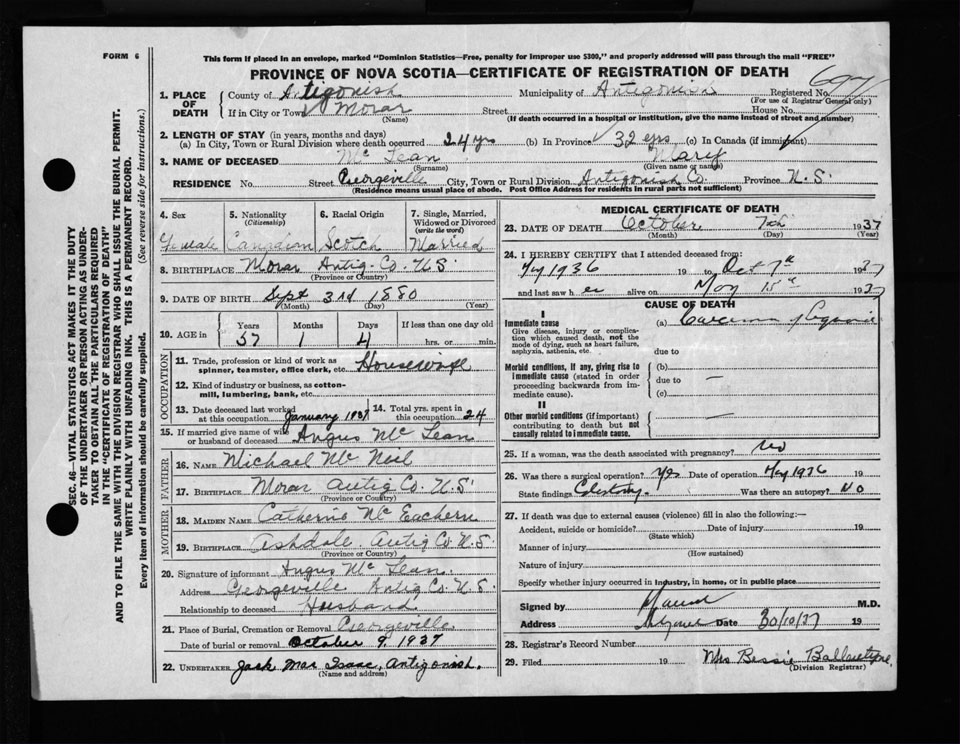 FORM 6
This form if placed in an envelope, marked "Dominion Statistics—Free, penalty for improper use $300," and properly addressed will pass through the mail "FREE"
PROVINCE OF NOVA SCOTIA—CERTIFICATE OF REGISTRATION OF DEATH
SEC. 46—VITAL STATISTICS ACT MAKES IT THE DUTY
OF THE UNDERTAKER OR PERSON ACTING AS UNDER-
TAKER TO OBTAIN ALL THE PARTICULARS REQUIRED
IN THE "CERTIFICATE OF REGISTRATION OF DEATH"
AND TO FILE THE SAME WITH THE DIVISION REGISTRAR WHO SHALL ISSUE THE BURIAL PERMIT.
WRITE PLAINLY WITH UNFADING INK. THIS IS A PERMANENT RECORD.
Every item of information should be carefully supplied. (See reverse side for instructions.)
1. PLACE OF DEATH County of Antigonish Municipality of Antigonish Registered No. 697
(For use of Registrar General only)
If in City or Town Morar Street House No.
(Name) (If death occurred in a hospital or institution, give the name instead of street and number)
2. LENGTH OF STAY (in years, months and days)
(a) In City, Town or Rural Division where death occurred 24 yrs (b) In Province 32 yrs (c) In Canada (if immigrant)
3. NAME OF DECEASED Mc Lean Mary
(Surname) (Given name or names)
RESIDENCE No. Street Georgeville City, Town or Rural Division Antigonish Co. Province N.S.
(Residence means usual place of abode. Post Office Address for residents in rural parts not sufficient)
4. Sex 5. Nationality (Citizenship) 6. Racial Origin 7. Single, Married, Widowed or Divorced (write the word)
Female Canadian Scotch Married
8. BIRTHPLACE Morar Antig. Co. N.S.
(Province or Country)
9. DATE OF BIRTH Sept 3rd 1880
(Month) (Day) (Year)
10. AGE in Years Months Days If less than one day old
57 1 4 hrs. or min.
OCCUPATION
11. Trade, profession or kind of work as
spinner, teamster, office clerk, etc. Housewife
12. Kind of industry or business, as cotton-
mill, lumbering, bank, etc.
13. Date deceased last worked at this occupation January 1937 14. Total yrs. spent in this occupation 24
15. If married give name of wife
or husband of deceased Angus Mc Lean
FATHER
16. NAME Michael Mc Neil
17. BIRTHPLACE Morar Antig Co. N.S.
(Province or Country)
MOTHER
18. MAIDEN NAME Catherine Mc Euchern
19. BIRTHPLACE Ashdale. Antig Co. N.S.
(Province or Country)
20. Signature of informant Angus Mc Lean
Address Georgeville Antig Co N.S.
Relationship to deceased Husband
21. Place of Burial, Cremation or Removal Georgeville
Date of burial or removal October 9, 1937
22. UNDERTAKER Jack Mac Isaac, Antigonish.
(Name and address)
MEDICAL CERTIFICATE OF DEATH
23. DATE OF DEATH October 7th 1937
(Month) (Day) (Year)
24. I HEREBY CERTIFY that I attended deceased from:
1936 19 to Oct 7th 1937
and last saw her alive on May 15th 1937
CAUSE OF DEATH
I
Immediate cause (a) Carcinoma of
Give disease, injury or complica-
tion which caused death, not the
mode of dying, such as heart failure,
asphyxia, asthenia, etc. due to
Morbid conditions, if any, giving rise to (b)
immediate cause (stated in order due to —
proceeding backwards from im-
mediate cause). (c)
II
Other morbid conditions (if important) —
contributing to death but not
causally related to immediate cause.
25. If a woman, was the death associated with pregnancy? No
26. Was there a surgical operation? Yes Date of operation May 1936 19
State findings Was there an autopsy? No
27. If death was due to external causes (violence) fill in also the following:—
Accident, suicide or homicide? Date of injury 19
(State which)
Manner of injury
(How sustained)
Nature of injury
Specify whether injury occurred in industry, in home, or in public place
Signed by M.D.
Address Date 30/10/37 19
28. Registrar's Record Number
29. Filed 19 Mrs Bessie Ballantyne
(Division Registrar)